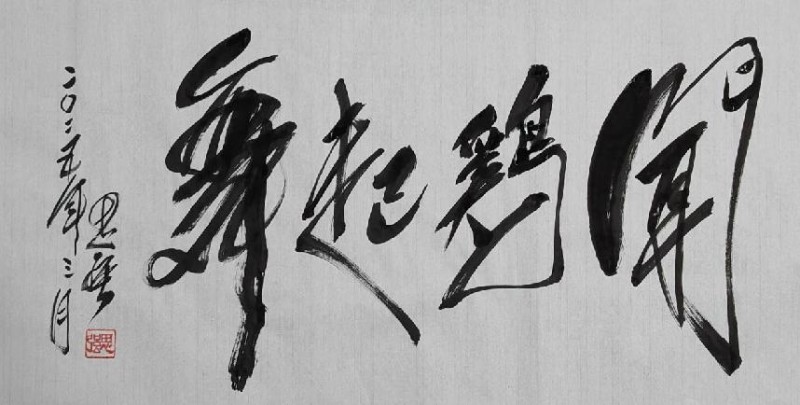 聞鷄起舞
二〇二五年三月
思